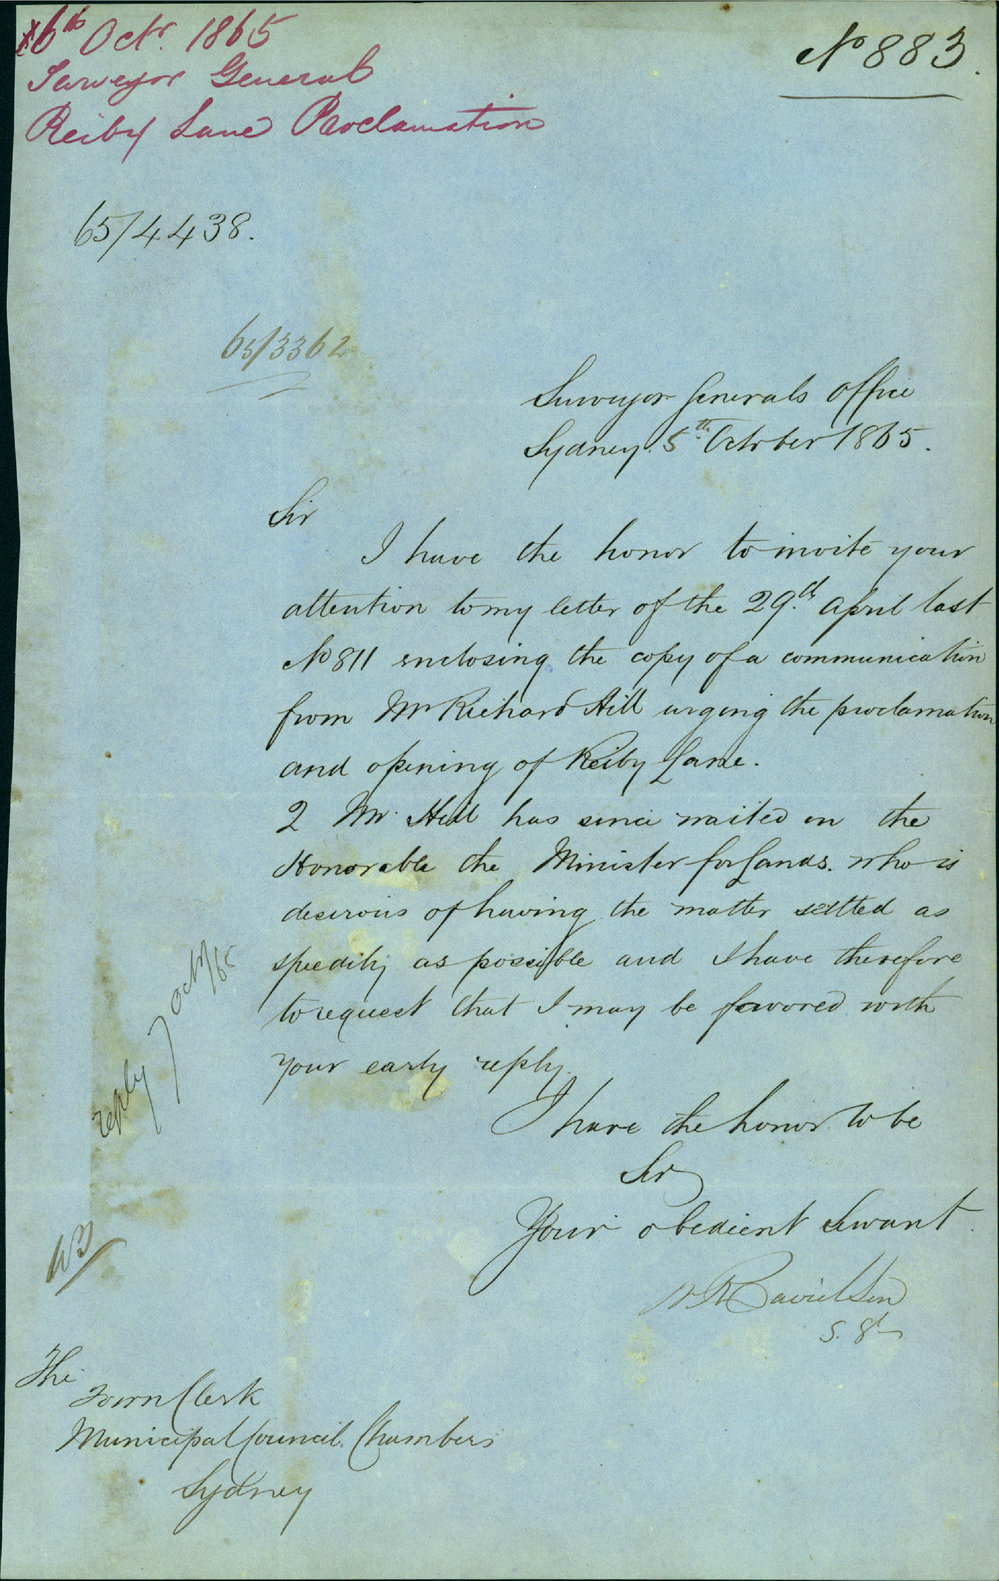 6th Octr. 1865
Surveyor General
Reiby Lane Proclamation
No 883.
65/4438.
65/3362
Surveyor Generals Office
Sydney. 5th October 1865.
Sir
I have the honor to invite your
attention to my letter of the 29th April last
No 811 enclosing the copy of a communication
from Mr Richard Hill urging the proclamation
and opening of Reiby Lane.
2 Mr. Hill has since waited on the
Honorable the Minister for Lands. who is
desirous of having the matter settled as
speedily as possible and I have therefore
to request that I may be favored with
your early reply.
I have the honor to be
Sir
Your obedient Servant.
W R Davidson
S. G
reply 7 Octr/65
The
Town Clerk
Municipal Council Chambers
Sydney